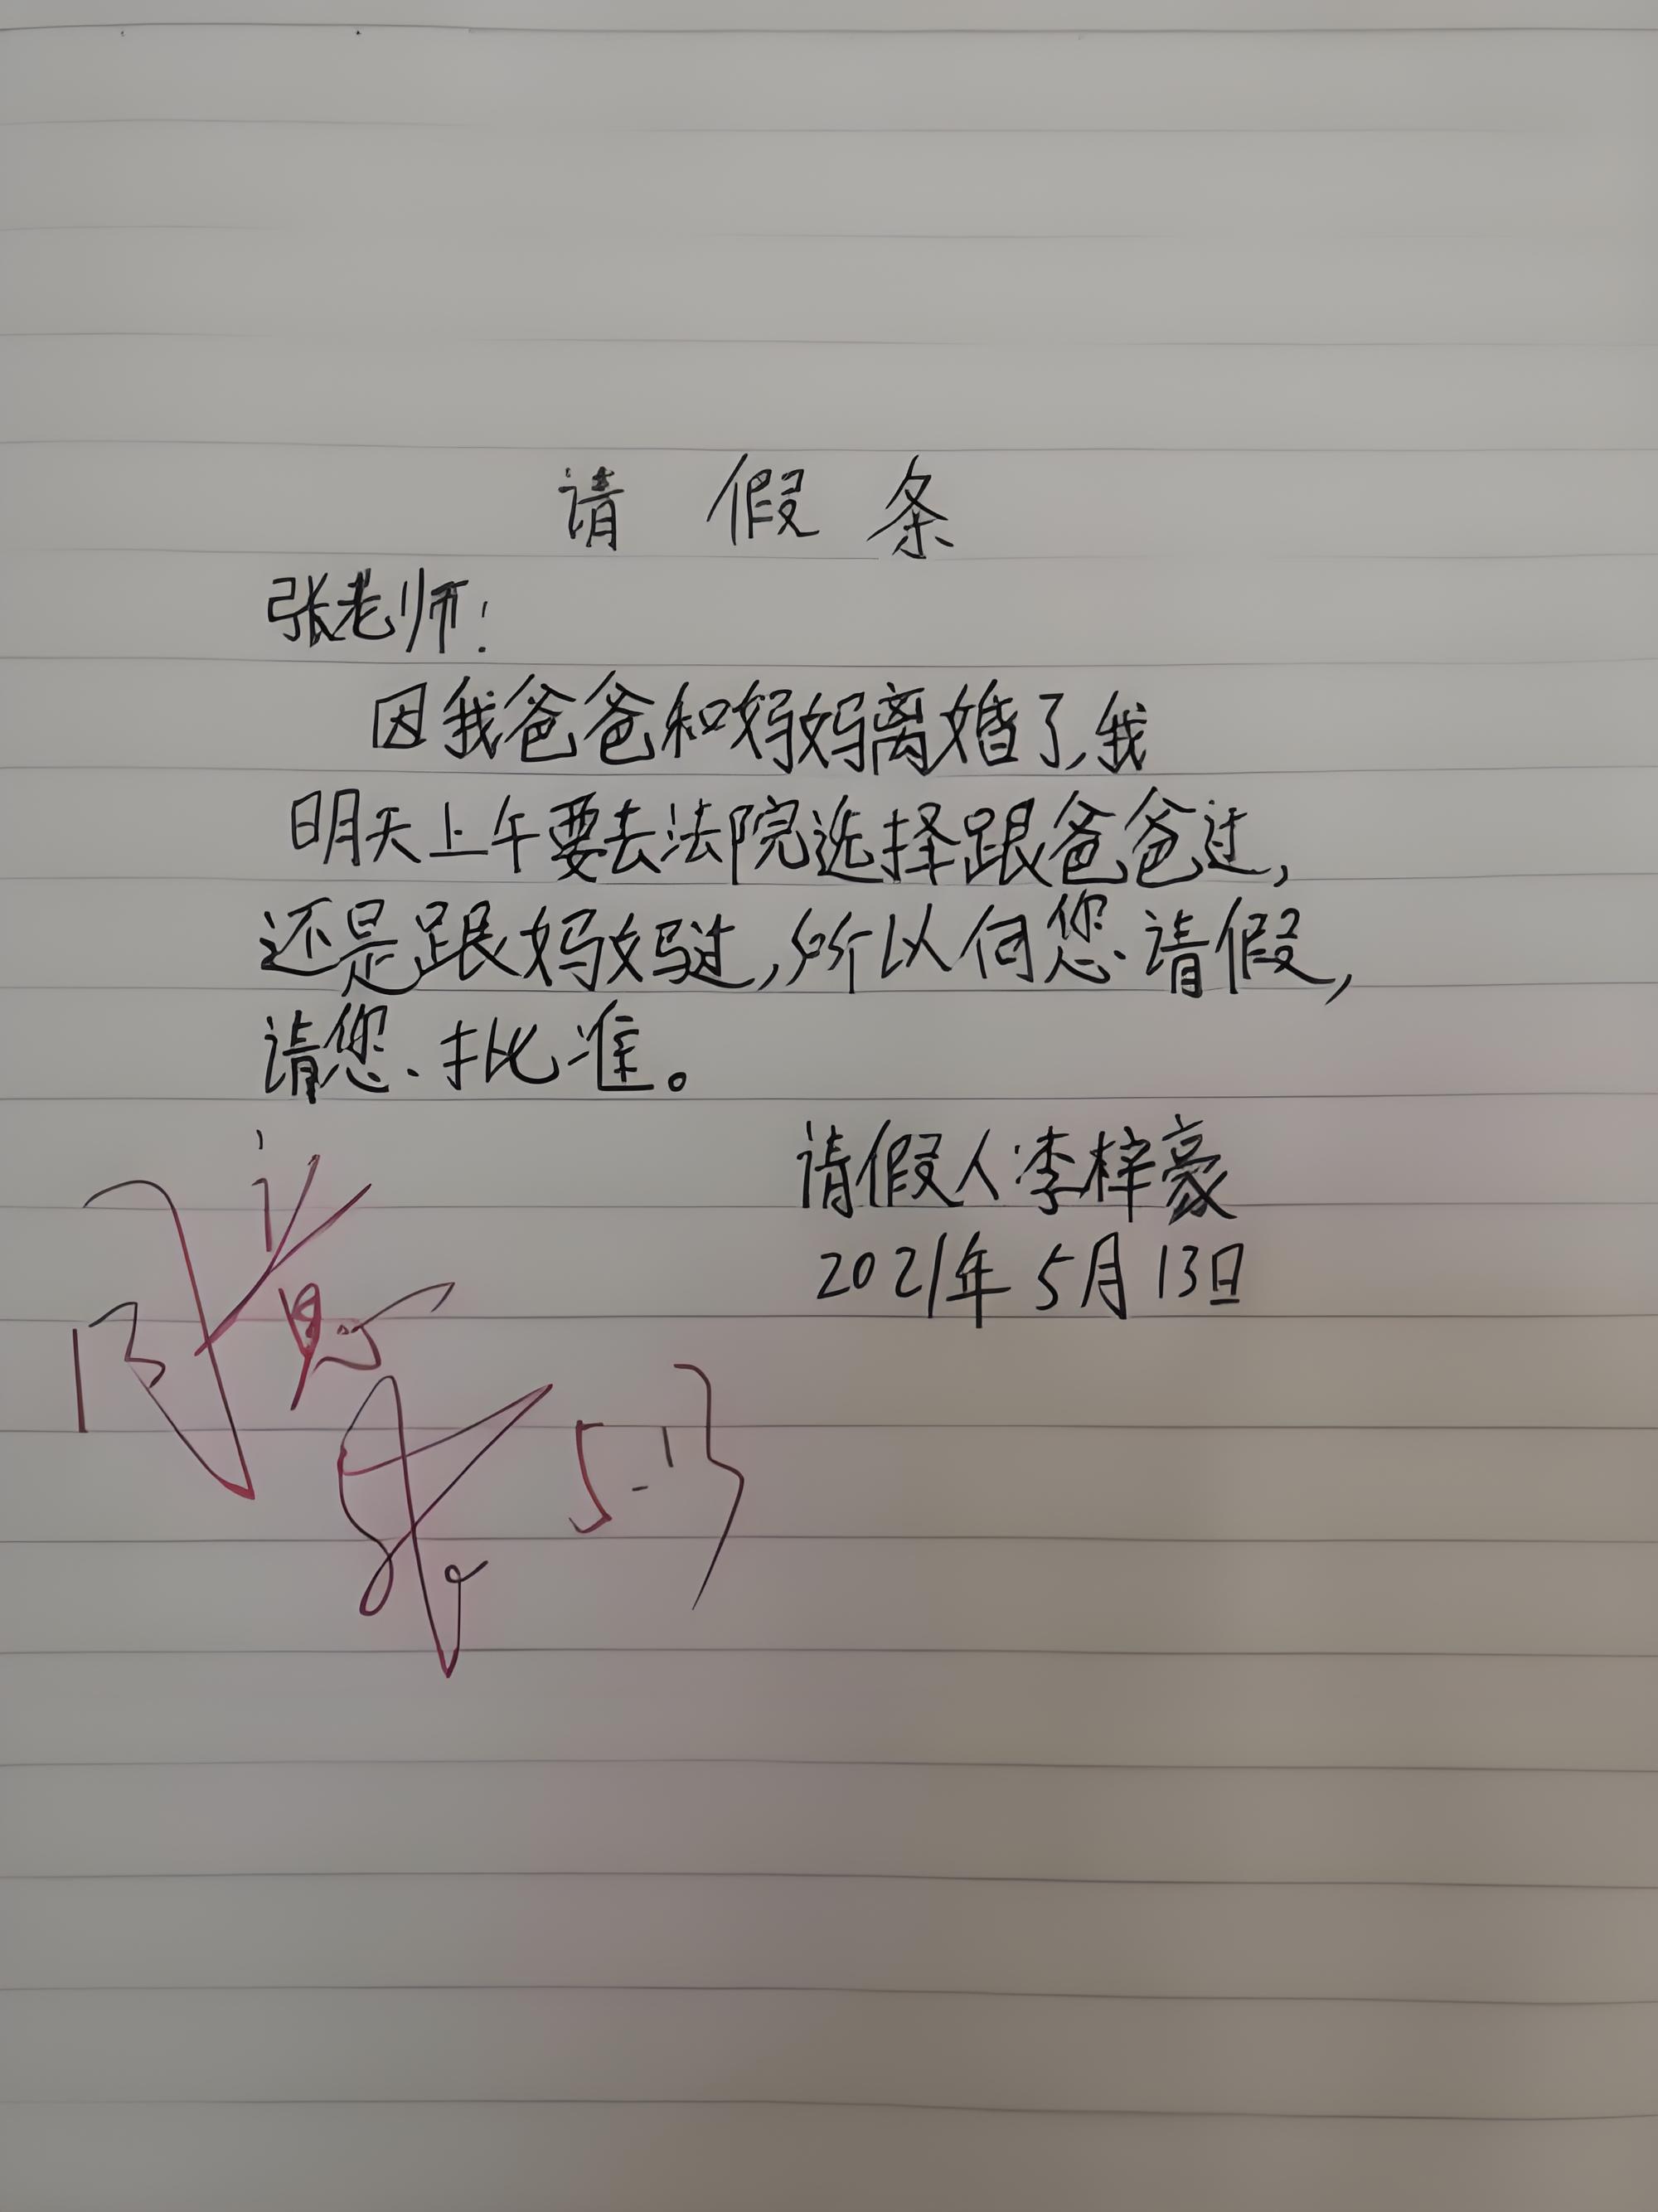 请假条
张老师:
因我爸爸和妈妈离婚了,我
明天上午要去法院选择跟爸爸过,
还是跟妈妈过,所以向您请假,
请您批准。
请假人李梓豪
2021年5月13日
5-13